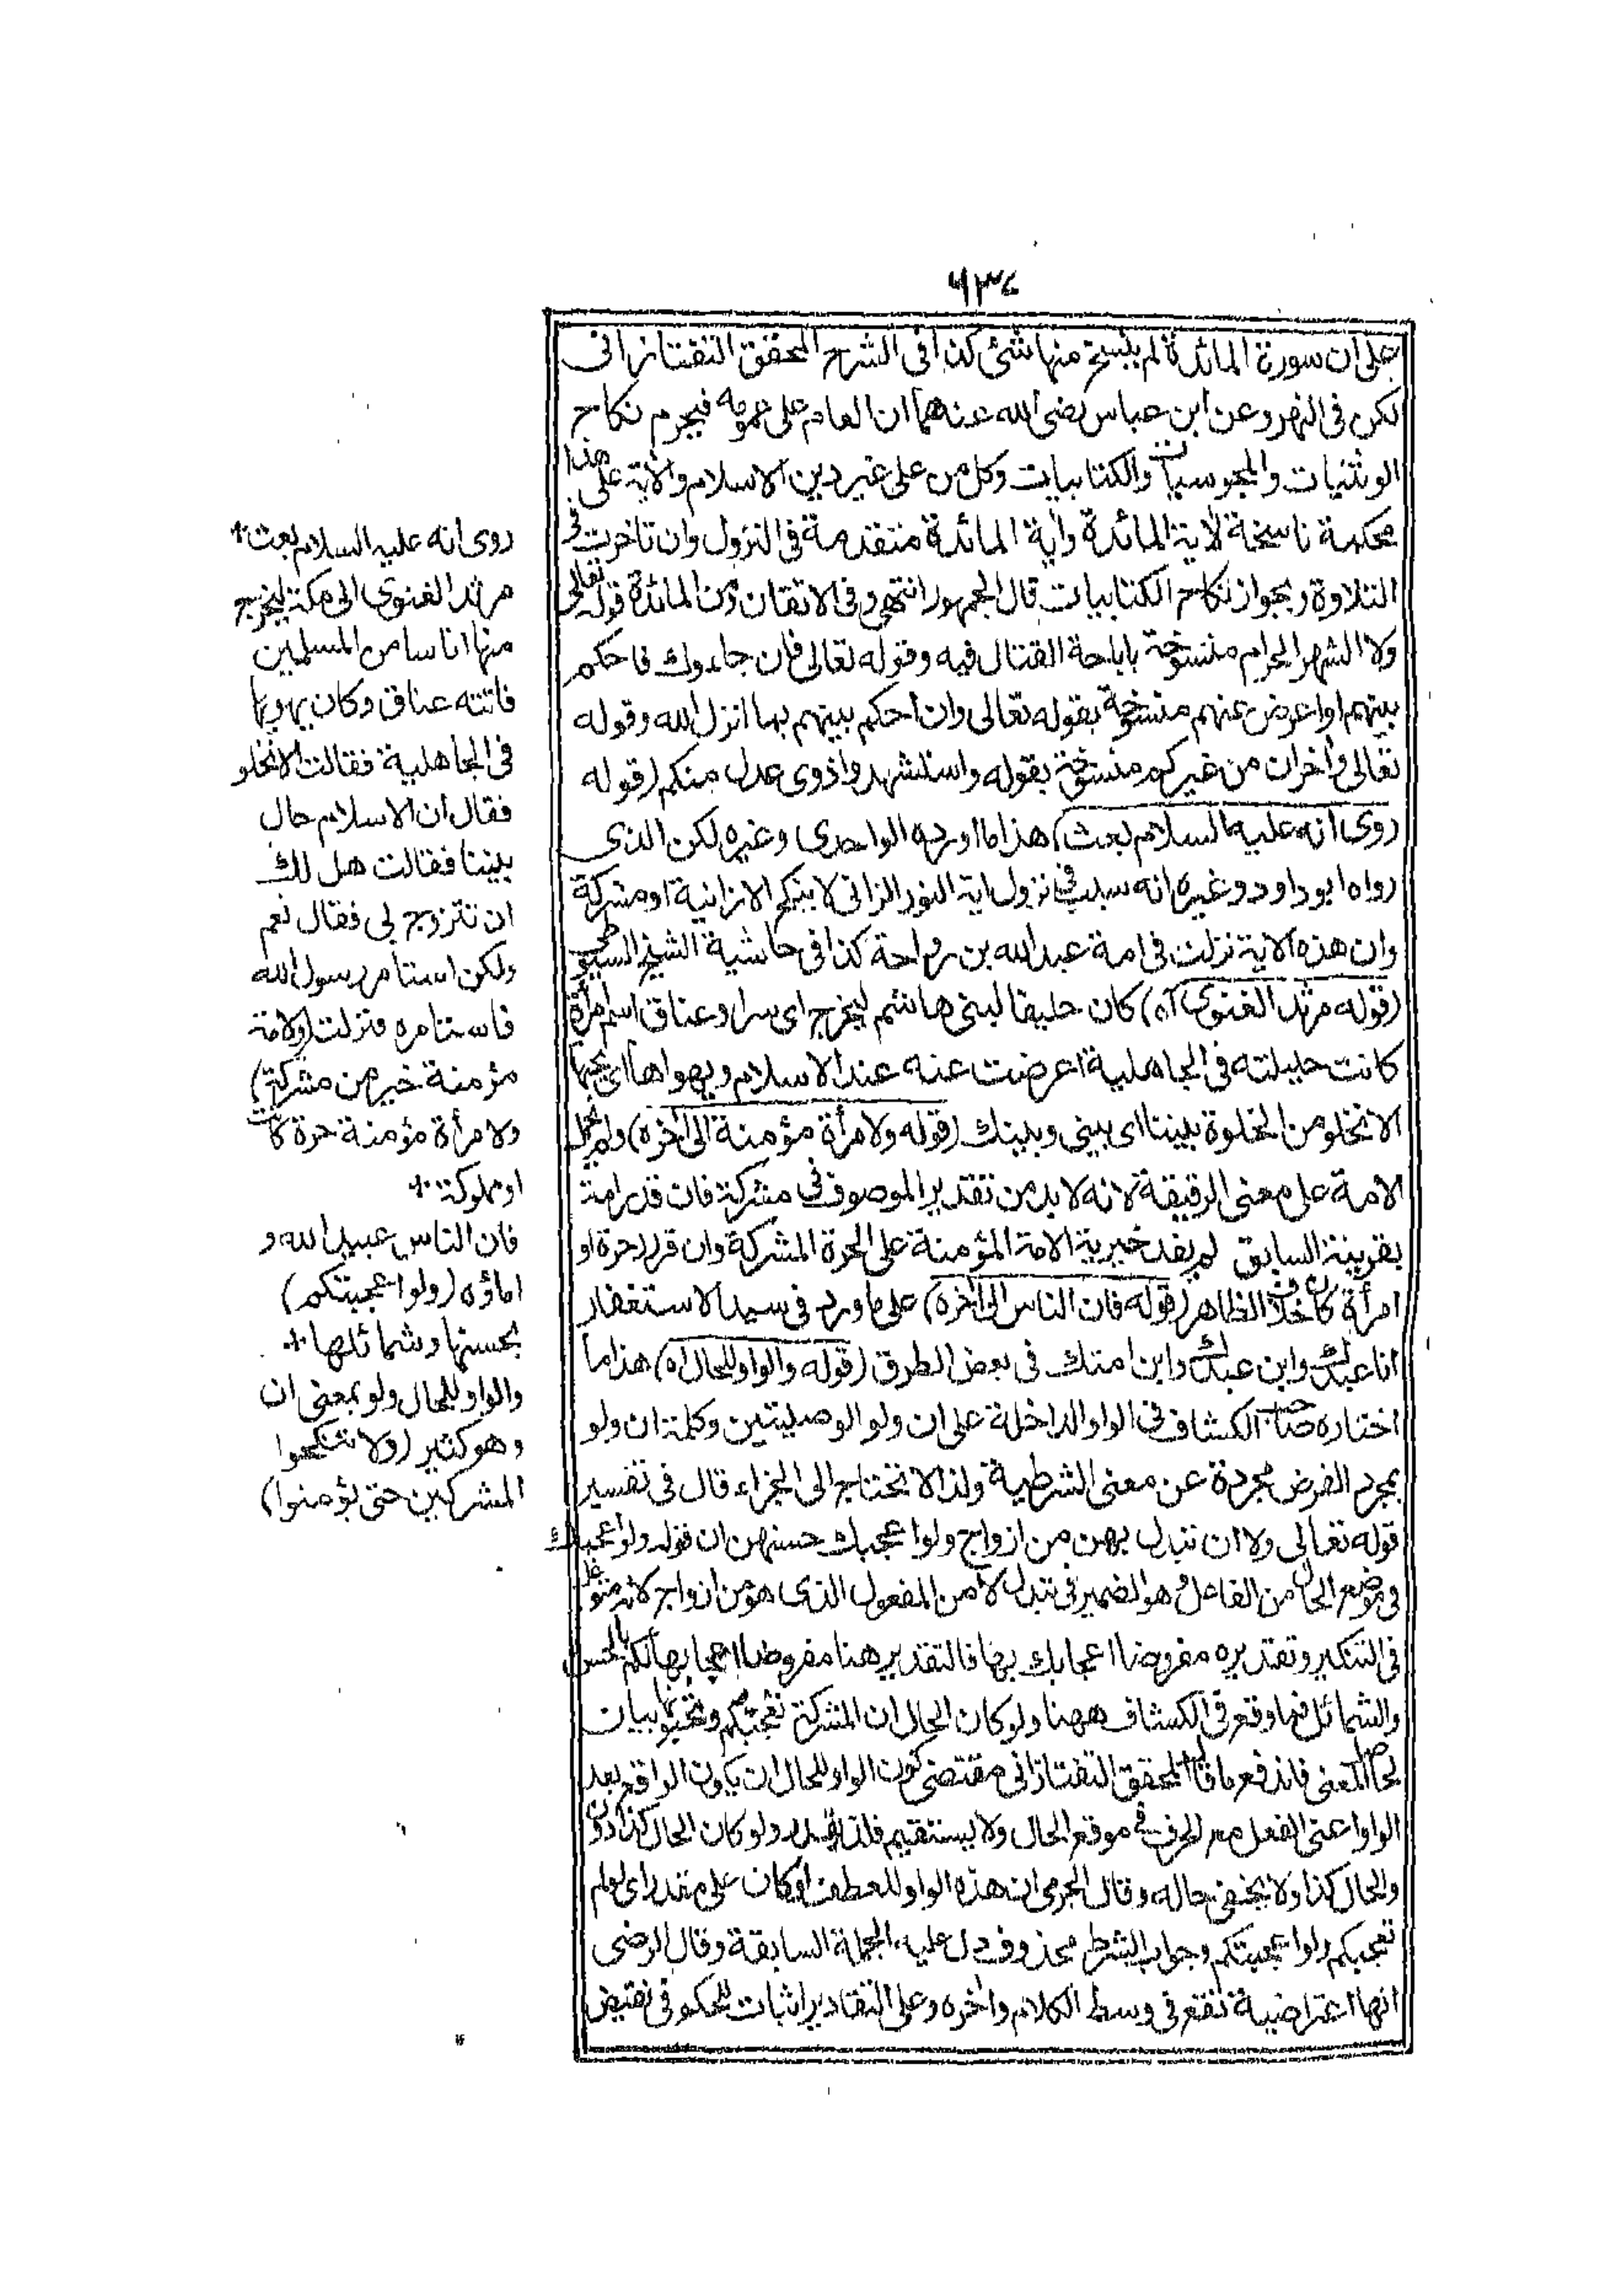 ٦٣٤
على ان سورة المائدة لم ينسخ منها شئ كذا فى الشرح المحقق التفتازانى
لكن فى النهر وعن ابن عباس رضى الله عنهما ان العام على عمومه فيحرم نكاح
الوثنيات والمجوسيات والكتابيات وكل من على غير دين الاسلام والآية على هذا
محكمة ناسخة لآية المائدة وآية المائدة متقدمة فى النزول وان تاخرت فى
التلاوة وبجواز نكاح الكتابيات قال الجمهور انتهى وفى الاتقان ومن المائدة قوله تعالى
ولا الشهر الحرام منسوخة باباحة القتال فيه وقوله تعالى فان جاءوك فاحكم
بينهم او اعرض عنهم منسوخة بقوله تعالى وان احكم بينهم بما انزل الله وقوله
تعالى وآخران من غيركم منسوخة بقوله واستشهدوا ذوى عدل منكم (قوله
روى انه عليه السلام بعث) هذا ما اورده الواحدى وغيره لكن الذى
رواه ابو داود وغيره انه سبب فى نزول اية النور الزانى لا ينكح الا زانية او مشركة
وان هذه الآية نزلت فى امة عبد الله بن رواحة كذا فى حاشية الشيخ السيوطى
(قوله مرثد الغنوى آه) كان حليفا لبنى هاشم ليخرج اى سرا وعناق اسم امرأة
كانت حليلته فى الجاهلية اعرضت عنه عند الاسلام ويهواها اى يحبها
الا تخلو من الخلوة بيننا اى بينى وبينك (قوله ولامرأة مؤمنة الى آخره) ولم يحمل
الامة على معنى الرقيقة لانه لا بد من تقدير الموصوف فى مشركة فان قدر امة
بقرينة السابق لم يفد خيرية الامة المؤمنة على الحرة المشركة وان قرر حرة او
امرأة كان خلاف الظاهر (قوله فان الناس الى آخره) على ما ورد فى سيد الاستغفار
انا عبدك وابن عبدك وابن امتك فى بعض الطرق (قوله والواو للحال اه) هذا ما
اختاره صاحب الكشاف فى الواو الداخلة على ان ولو الوصليتين وكلمة ان ولو
بمجرد الفرض مجردة عن معنى الشرطية ولذا لا تحتاج الى الجزاء قال فى تفسير
قوله تعالى ولا ان تبدل بهن من ازواج ولو اعجبك حسنهن ان قوله ولو اعجبك
فى موضع الحال من الفاعل وهو الضمير فى تبدل لا من المفعول الذى هو من ازواج لانه متوغل
فى التنكير وتقديره مفروضا اعجابك بها فالتقدير هنا مفروضا اعجابها لكم بالحسن
والشمائل فما وقع فى الكشاف ههنا ولو كان الحال ان المشركة تعجبكم وتحبونها بيان
لحاصل المعنى فاندفع ما قال المحقق التفتازانى مقتضى كون الواو للحال ان يكون الواقع بعد
الواو اعنى الفعل مع الحرف فى موقع الحال ولا يستقيم فلذا قدر ولو كان الحال كذا دون
والحال كذا ولا يخفى حاله وقال الجرمى ان هذه الواو للعطف وكان على مقدر اى لو لم
تعجبكم ولو اعجبتكم وجواب الشرط محذوف دل عليه الجملة السابقة وقال الرضى
انها اعتراضية تقع فى وسط الكلام وآخره وعلى التقادير اثبات للحكم فى نقيض
روى انه عليه السلام بعث
مرثد الغنوى الى مكة ليخرج
منها اناسا من المسلمين
فاتته عناق وكان يهويها
فى الجاهلية فقالت الا تخلو
فقال ان الاسلام حال
بيننا فقالت هل لك
ان تتزوج بى فقال نعم
ولكن استامر رسول الله
فاستامره فنزلت (ولامة
مؤمنة خير من مشركة)
ولامرأة مؤمنة حرة كانت
او مملوكة
فان الناس عبيد الله و
اماؤه (ولو اعجبتكم)
بحسنها وشمائلها
والواو للحال ولو بمعنى ان
وهو كثير (ولا تنكحوا
المشركين حتى يؤمنوا)